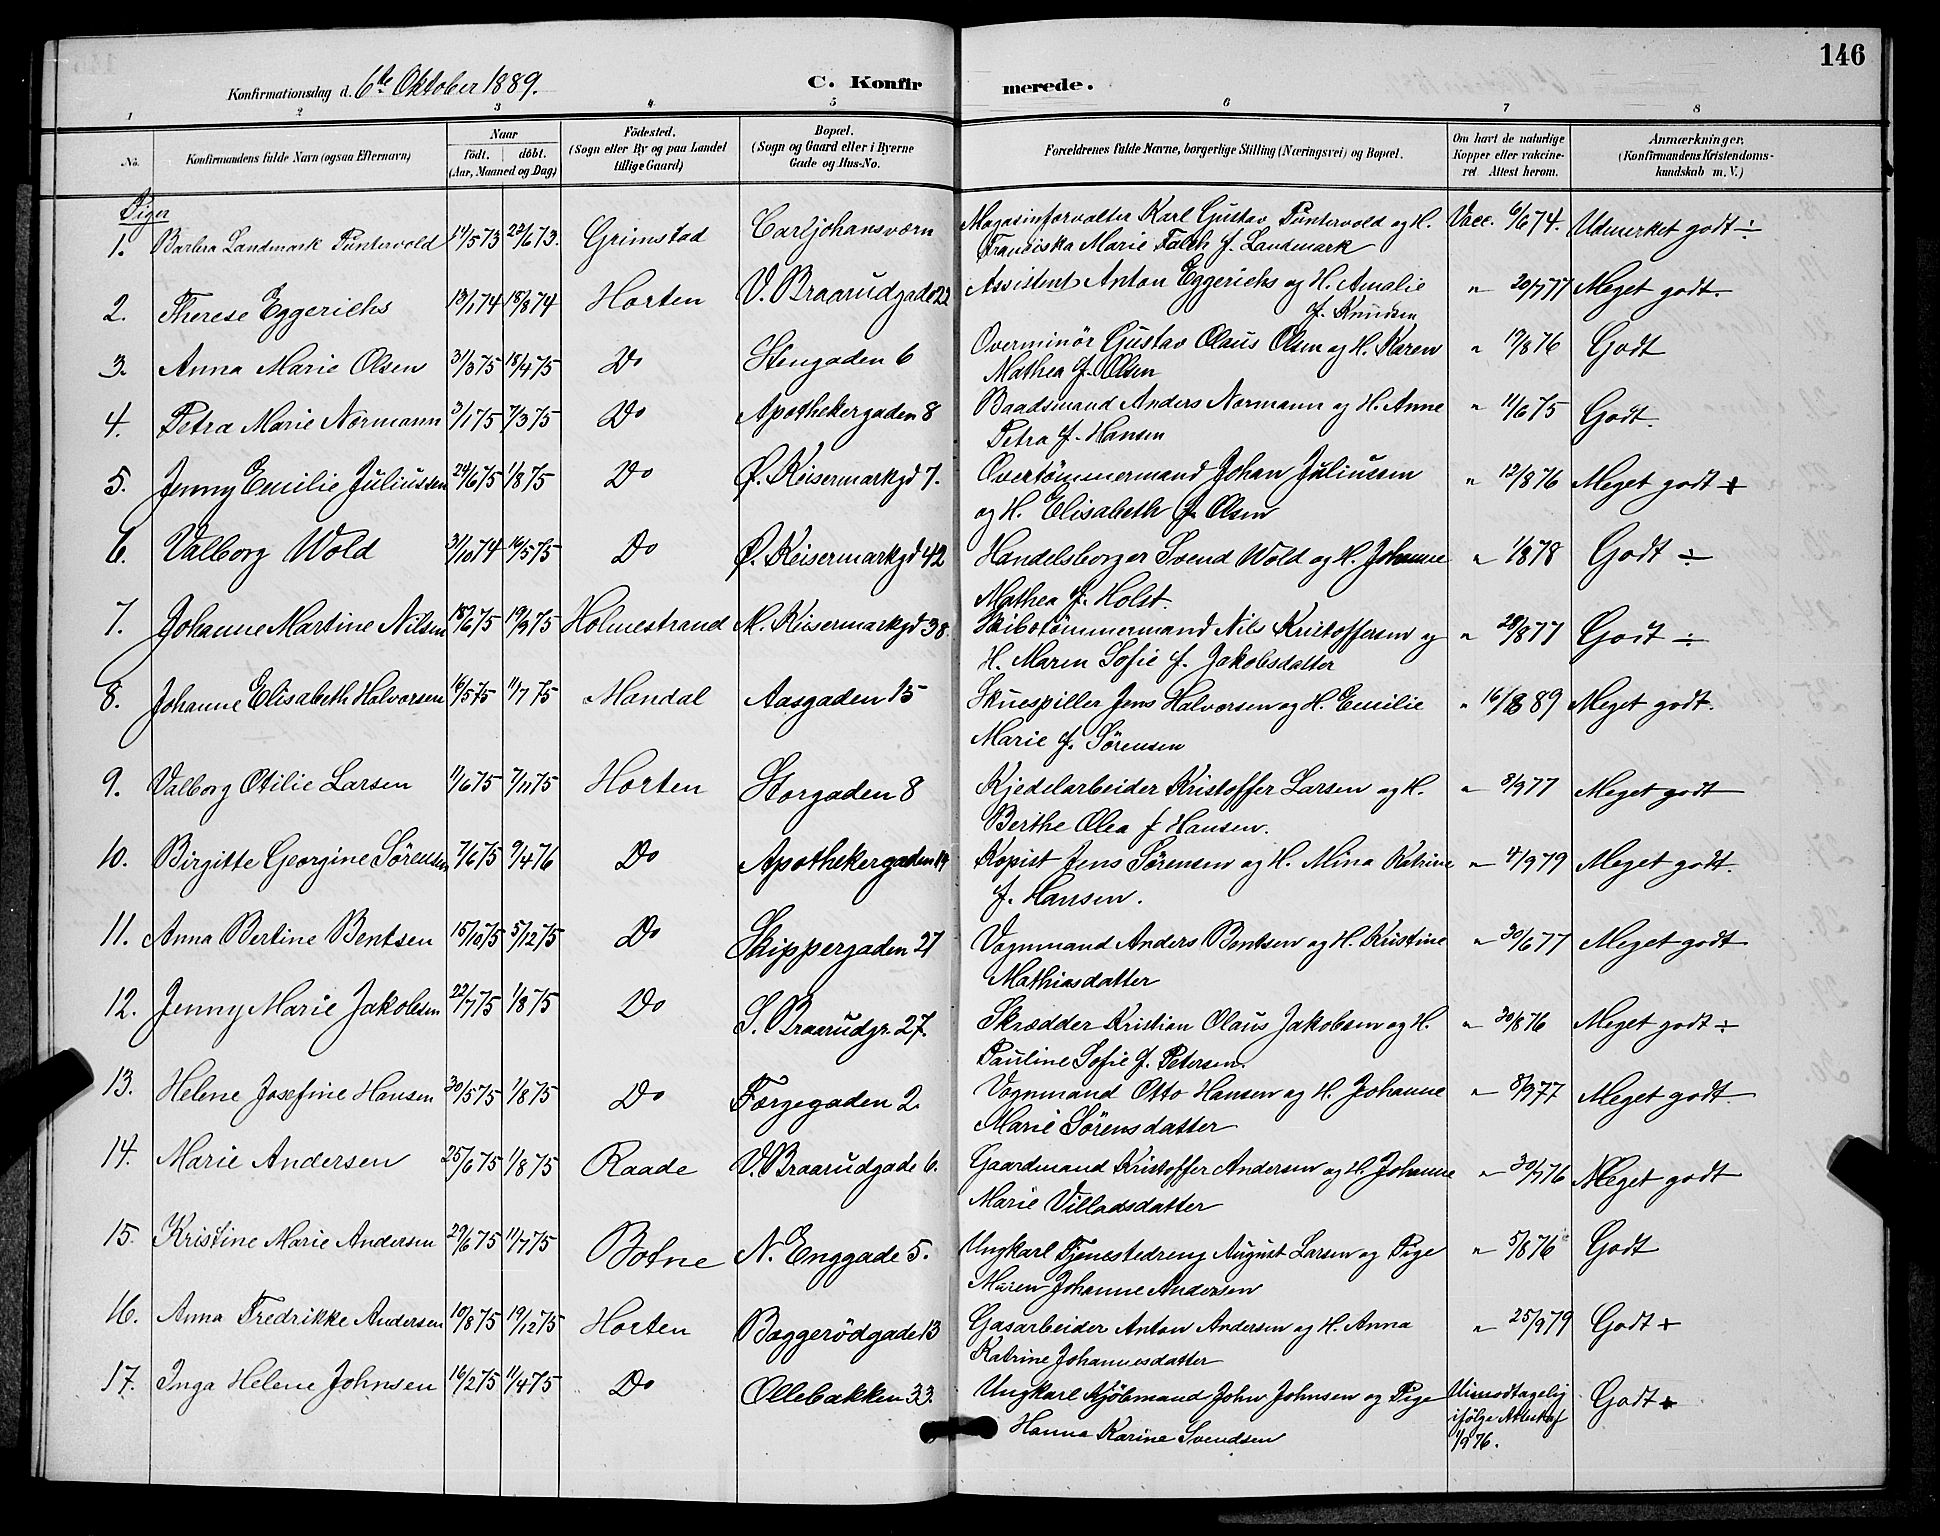 146
Konfirmationsdag d. 6te Oktober 1889.
C. Konfirmerede.
1 2 3 4 5 6 7 8
No. Konfirmandens fulde Navn (ogsaa Efternavn) Naar födt. döbt. (Aar, Maaned og Dag) Födested. (Sogn eller By og paa Landet tillige Gaard) Bopæl. (Sogn og Gaard eller i Byerne Gade og Hus-No. Forældrenes fulde Navne, borgerlige Stilling (Næringsvei) og Bopæl. Om havt de naturlige Kopper eller vakcineret Attest herom. Anmærkninger. (Konfirmandens Kristendomskundskab m. V.)
Piger
1. Barbra Landmark Puntervold 14/5 73 22/6 73. Grimstad Carljohansværn Magasinforvalter Karl Gustav Puntervold og H. Vacc. 6/6 74. Udmerket godt ÷
Franciska Marie Falch f. Landmark
2. Therese Eggerichs 13/1 74 18/9 74 Horten V. Braarudgade 22 Assistent Anton Eggerichs og H. Amalie " 20/7 77 Meget godt.
f. Knudsen
3. Anna Marie Olsen 31/3 75 18/4 75 Do Stengaden 6 Overminör Gustav Olaus Olsen og H. Karen " 19/8 76 Godt
Mathea f. Olsen
4. Petra Marie Normann 3/1 75 7/3 75 Do Apothekergaden 8 Baadsmand Anders Normann og H. Anne " 11/6 75 Godt.
Petra f. Hansen
5. Jenny Emilie Juliussen 24/6 75 1/8 75 Do Ø. Keisermarkgd 7. Overtömmermand Johan Juliussen " 12/8 76 Meget godt +
og H. Elisabeth f. Olsen
6. Valborg Wold 31/10 74 16/5 75 Do Ø. Keisermarkgd 42 Handelsborger Svend Wold og H. Johanne " 1/8 78 Godt ÷
Mathea f. Holst.
7. Johanne Martine Nilsen 18/6 75 19/9 75 Holmestrand M. Keisermarkgd 38. Skibstömmermand Nils Kristoffersen og " 28/8 77 Godt ÷
H. Maren Sofie f. Jakobsdatter
8. Johanne Elisabeth Halvorsen 16/5 75 11/7 75 Mandal Aasgaden 15 Skuespiller Jens Halvorsen og H. Emilie " 16/8 89 Meget godt.
Marie f. Sörensen
9. Valborg Otilie Larsen 11/6 75 7/11 75 Horten Storgaden 8 Kjedelarbeider Kristoffer Larsen og H. " 8/9 77 Meget godt
Berthe Olea f Hansen.
10. Birgitte Georgine Sörensen 7/6 75 9/4 76 Do Apothekergaden 19 Kopist Jens Sörensen og H. Mina Katrine " 4/9 79 Meget godt.
f. Hansen.
11. Anna Bertine Bentsen 15/10 75 5/12 75 Do Skippergaden 27 Vognmand Anders Bentsen og H. Kristine " 30/6 77 Meget godt
Mathiasdatter
12. Jenny Marie Jakobsen 22/7 75 1/8 75 Do S. Braarudgr. 27. Skrædder Kristian Olaus Jakobsen og H. " 30/8 76 Meget godt ÷
Pauline Sofie f. Petersen.
13. Helene Josefine Hansen 30/5 75 1/8 75 Do Færgegaden 2. Vognmand Otto Hansen og H. Johanne " 8/9 77 Meget godt
Marie Sörensdatter
14. Marie Andersen 25/6 75 1/8 75 Raade V. Braarudgade 6. Gaardmand Kristoffer Andersen og H. Johanne " 30/7 76 Meget godt
Marie Villadsdatter
15. Kristine Marie Andersen 29/6 75 11/7 75 Botne N. Enggade 5. Ungkarl Tjenestedreng August Larsen og Pige " 5/8 76 Godt
Maren Johanne Andersen
16. Anna Fredrikke Andersen 10/8 75 19/12 75 Horten Baggerödgade 13 Gasarbeider Anton Andersen og H. Anna " 25/9 79 Godt +
Katrine Johannesdatter
17. Inga Helene Johnsen 16/2 75 11/4 75 Do Ollebakken 33. Ungkarl Kjöbmand John Johnsen og Pige Uimodtagelig Godt +
Hanna Karine Svendsen ifölge Attest af
1/9 76.